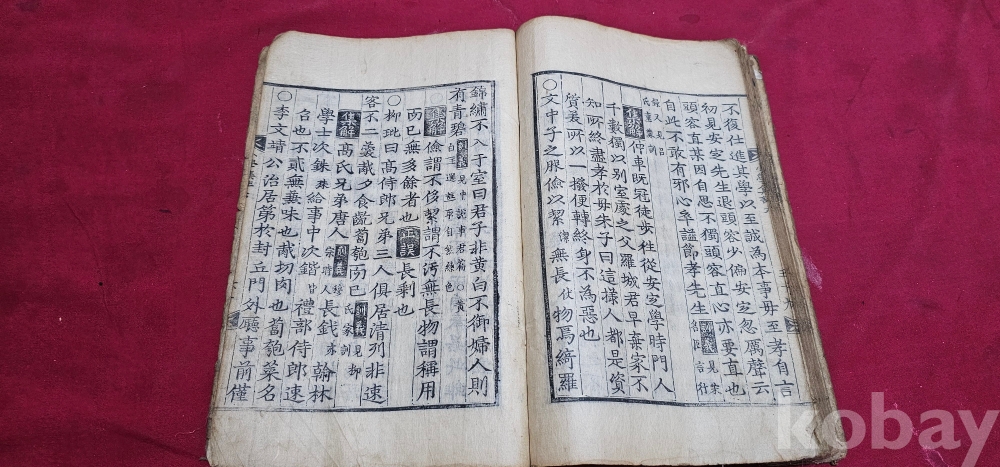 不復仕進其學以至誠為本事母至孝自言
初見安定先生退頭容少偏安定忽厲聲云
頭容直某因自思不獨頭容直心亦要直也
自此不敢有邪心卒謚節孝先生
錄又見呂
氏童蒙訓
集解 仲車旣冠徒步往從安定學時門人
千數獨以別室處之父羅城君早棄家不
知所終盡孝於母朱子曰這樣人都是資
質美所以一撥便轉終身不為惡也
○文中子之服儉以絜潔無長仗物焉綺羅
錦繡不入于室曰君子非黃白不御婦人則
有青碧 見中說事君篇○黃
集解 儉謂不侈絜謂不汚無長物謂稱用
而已無多餘者也 正誤 長剩也
○柳玭曰高侍郎兄弟三人俱居清列非速
客不二羹胾夕食齕蔔匏而已 見柳氏家訓
集解 高氏兄弟唐人 長釴 翰林
學士次銖殊給事中次鍇甘禮部侍郎速
召也不貳無兼味也胾切肉也蔔匏菜名
○李文靖公治居第於封丘門外廳事前僅
kobay